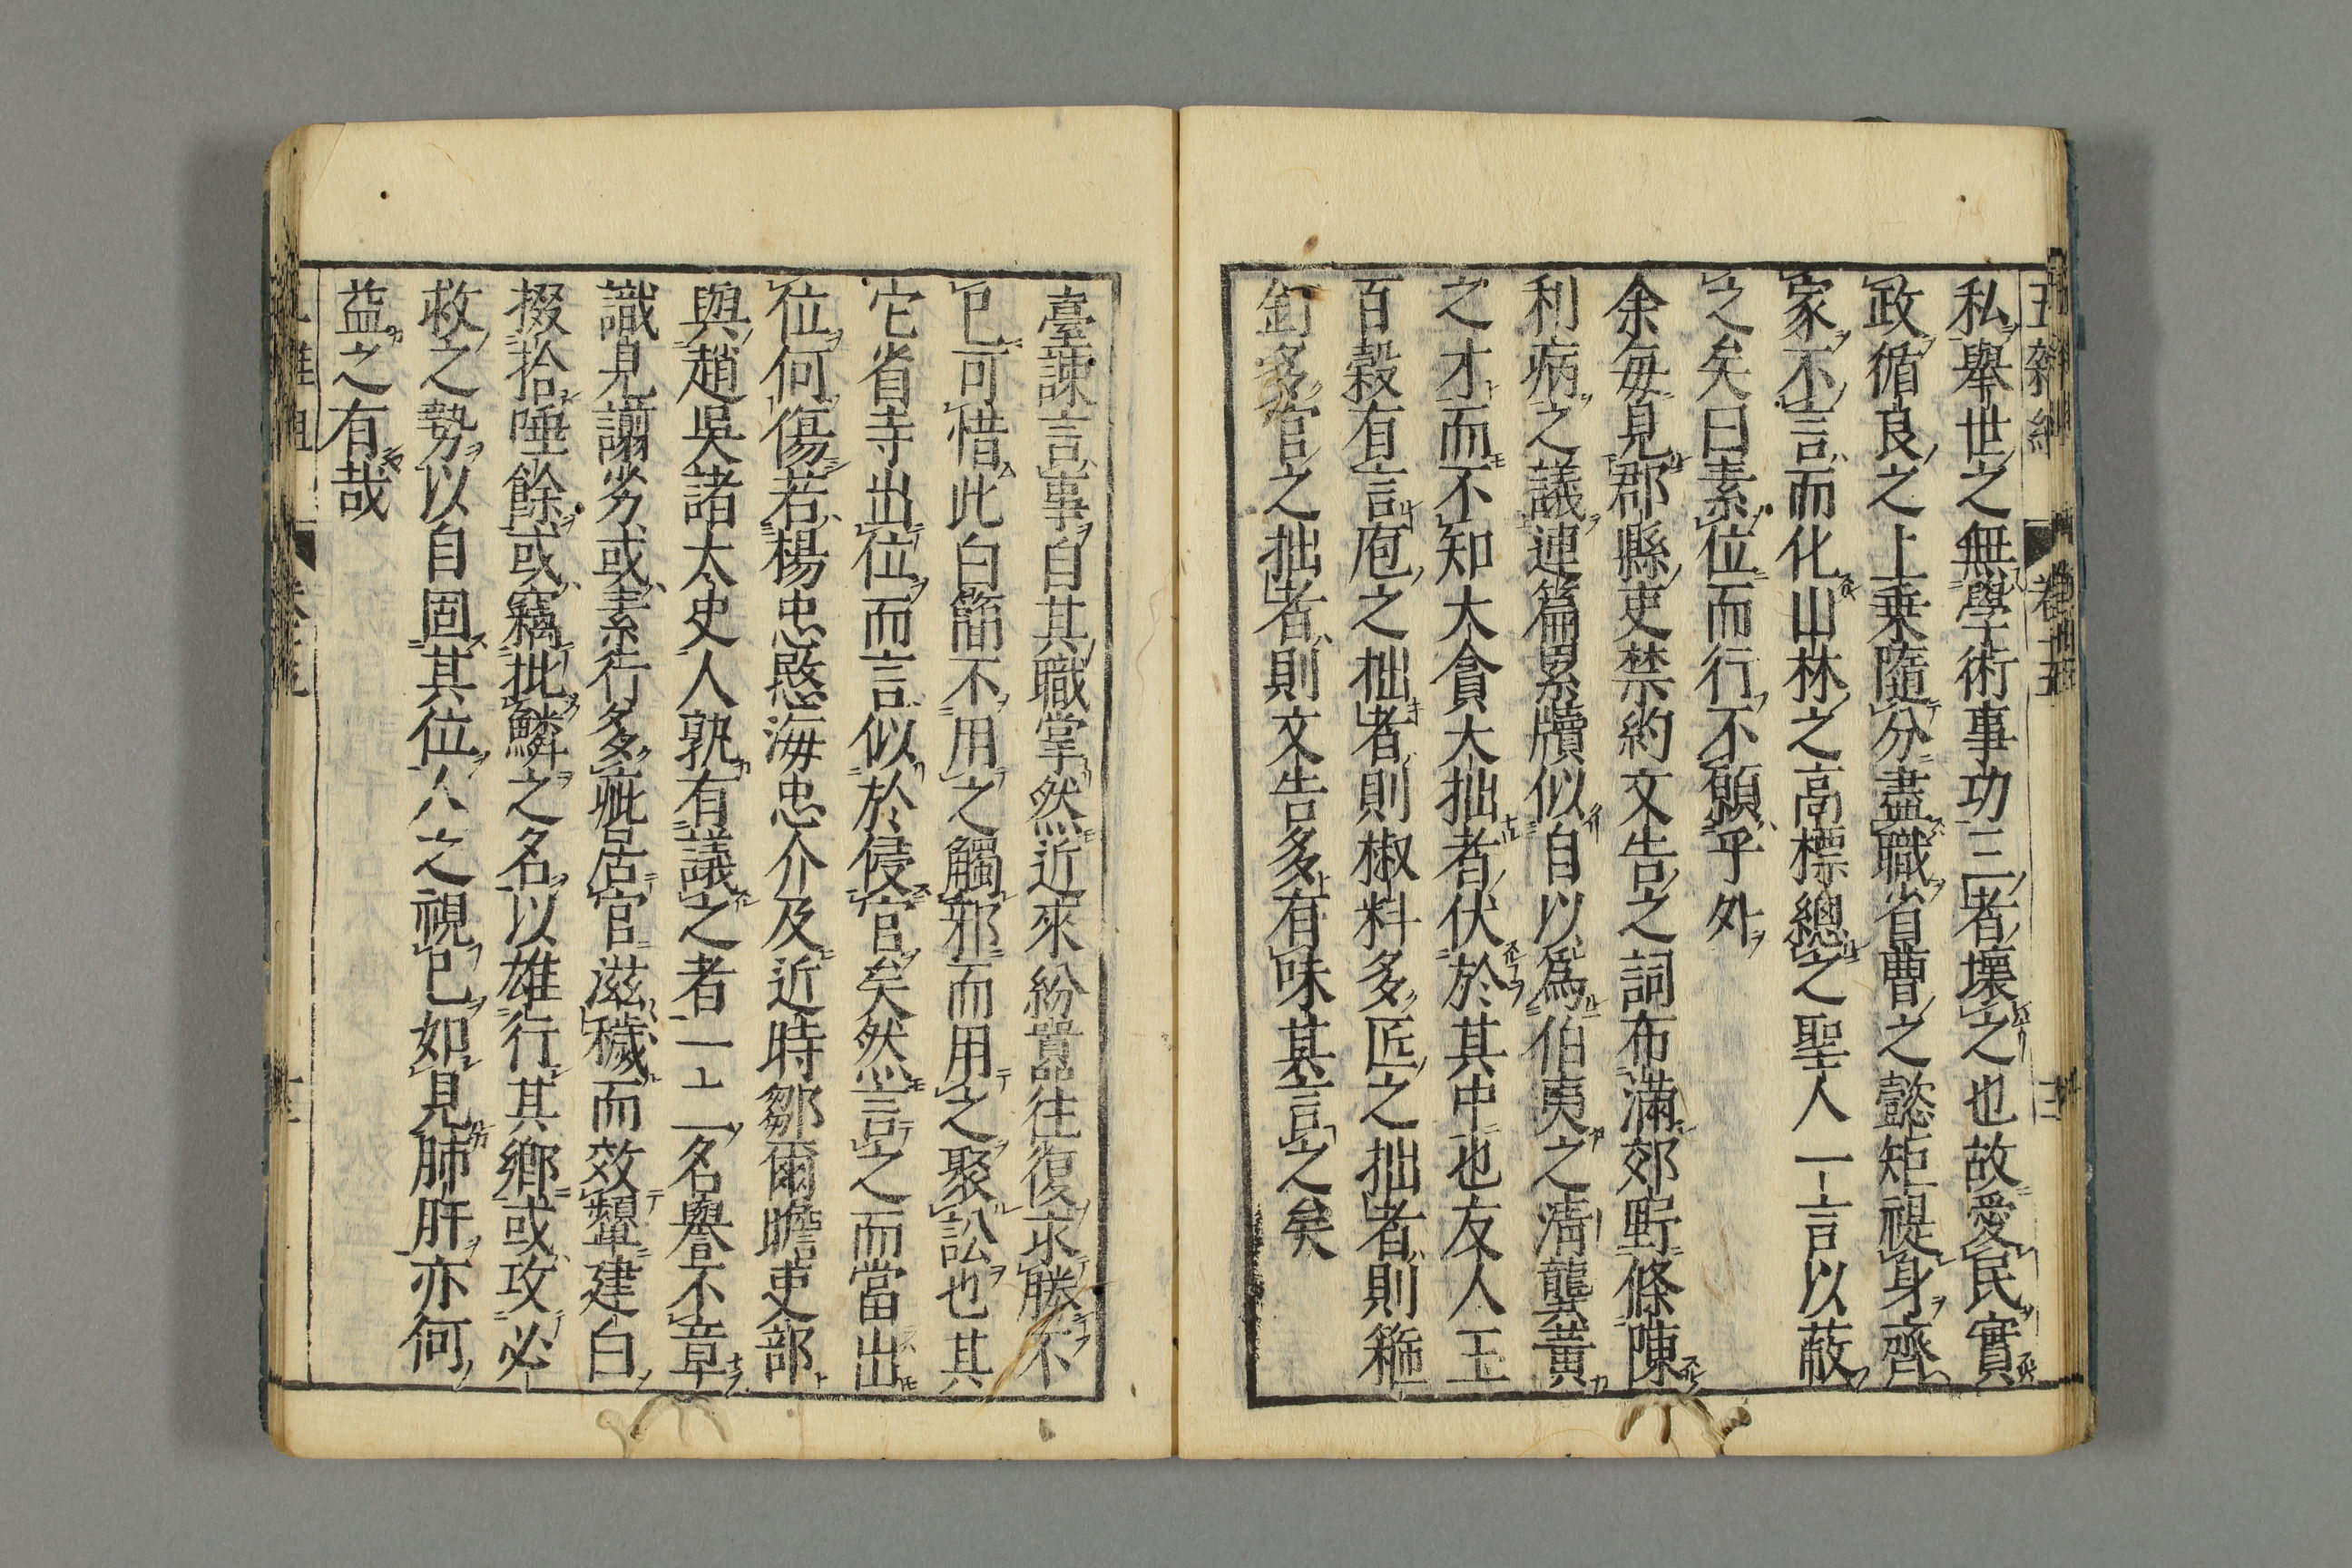 私舉世之無學術事功三者壞之也故愛民實
政循良之上乘隨分盡職省曹之懿矩禔身齊
家不言而化山林之高標總之聖人一言以蔽
之矣曰素位而行不願乎外
余每見郡縣吏禁約文告之詞布滿郊野條陳
利病之議連篇累牘似自以爲伯夷之淸龔黃
之才而不知大貪大拙者伏於其中也友人王
百穀有言庖之拙者則椒料多匠之拙者則箍
釘多官之拙者則文告多有味其言之矣
臺諫言事自其職掌然近來紛囂往復求勝不
已可惜此白簡不用之觸邪而用之聚訟也其
它省寺出位而言似於侵官矣然言之而當出
位何傷若楊忠愍海忠介及近時鄒爾瞻吏部
與趙吳諸太史人孰有議之者一二名譽不章
識見譾劣或素行多疵居官滋穢而效顰建白
掇拾唾餘或竊批鱗之名以雄行其鄉或攻必
救之勢以自固其位人之視已如見肺肝亦何
益之有哉